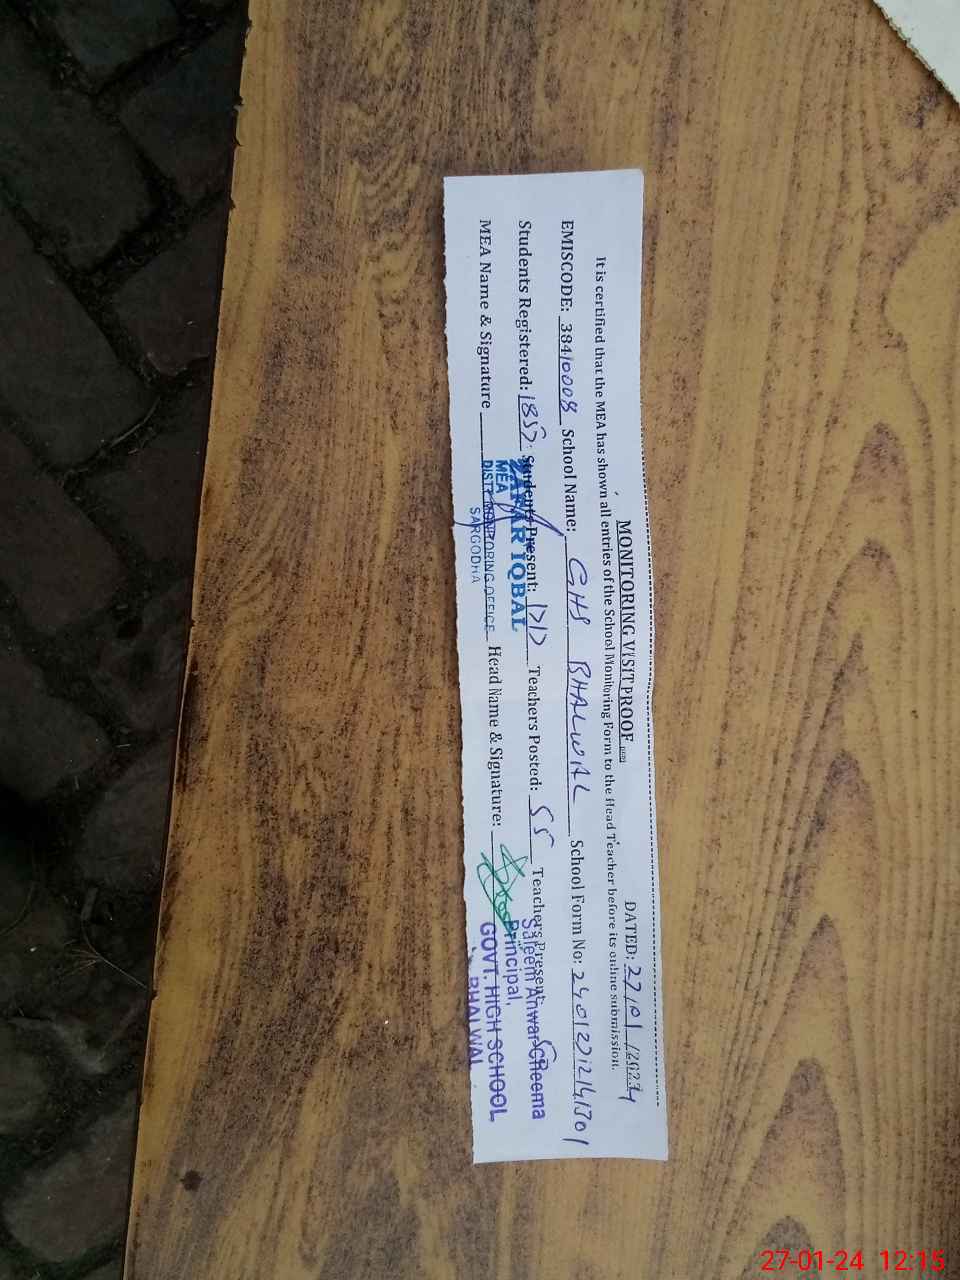 MONITORING VISIT PROOF
DATED: 27/01/2024
It is certified that the MEA has shown all entries of the School Monitoring Form to the Head Teacher before its online submission.
EMISCODE: 38410008 School Name: GHS BHALWAL School Form No:
Students Registered: 1857 Students Present: Teachers Posted: 55 Teachers Present:
MEA Name & Signature Head Name & Signature:
ZAWAR IQBAL
MEA
DISTT MONITORING OFFICE
SARGODHA
Saleem Anwar Cheema
Principal,
GOVT. HIGH SCHOOL
BHALWAL
27-01-24 12:15